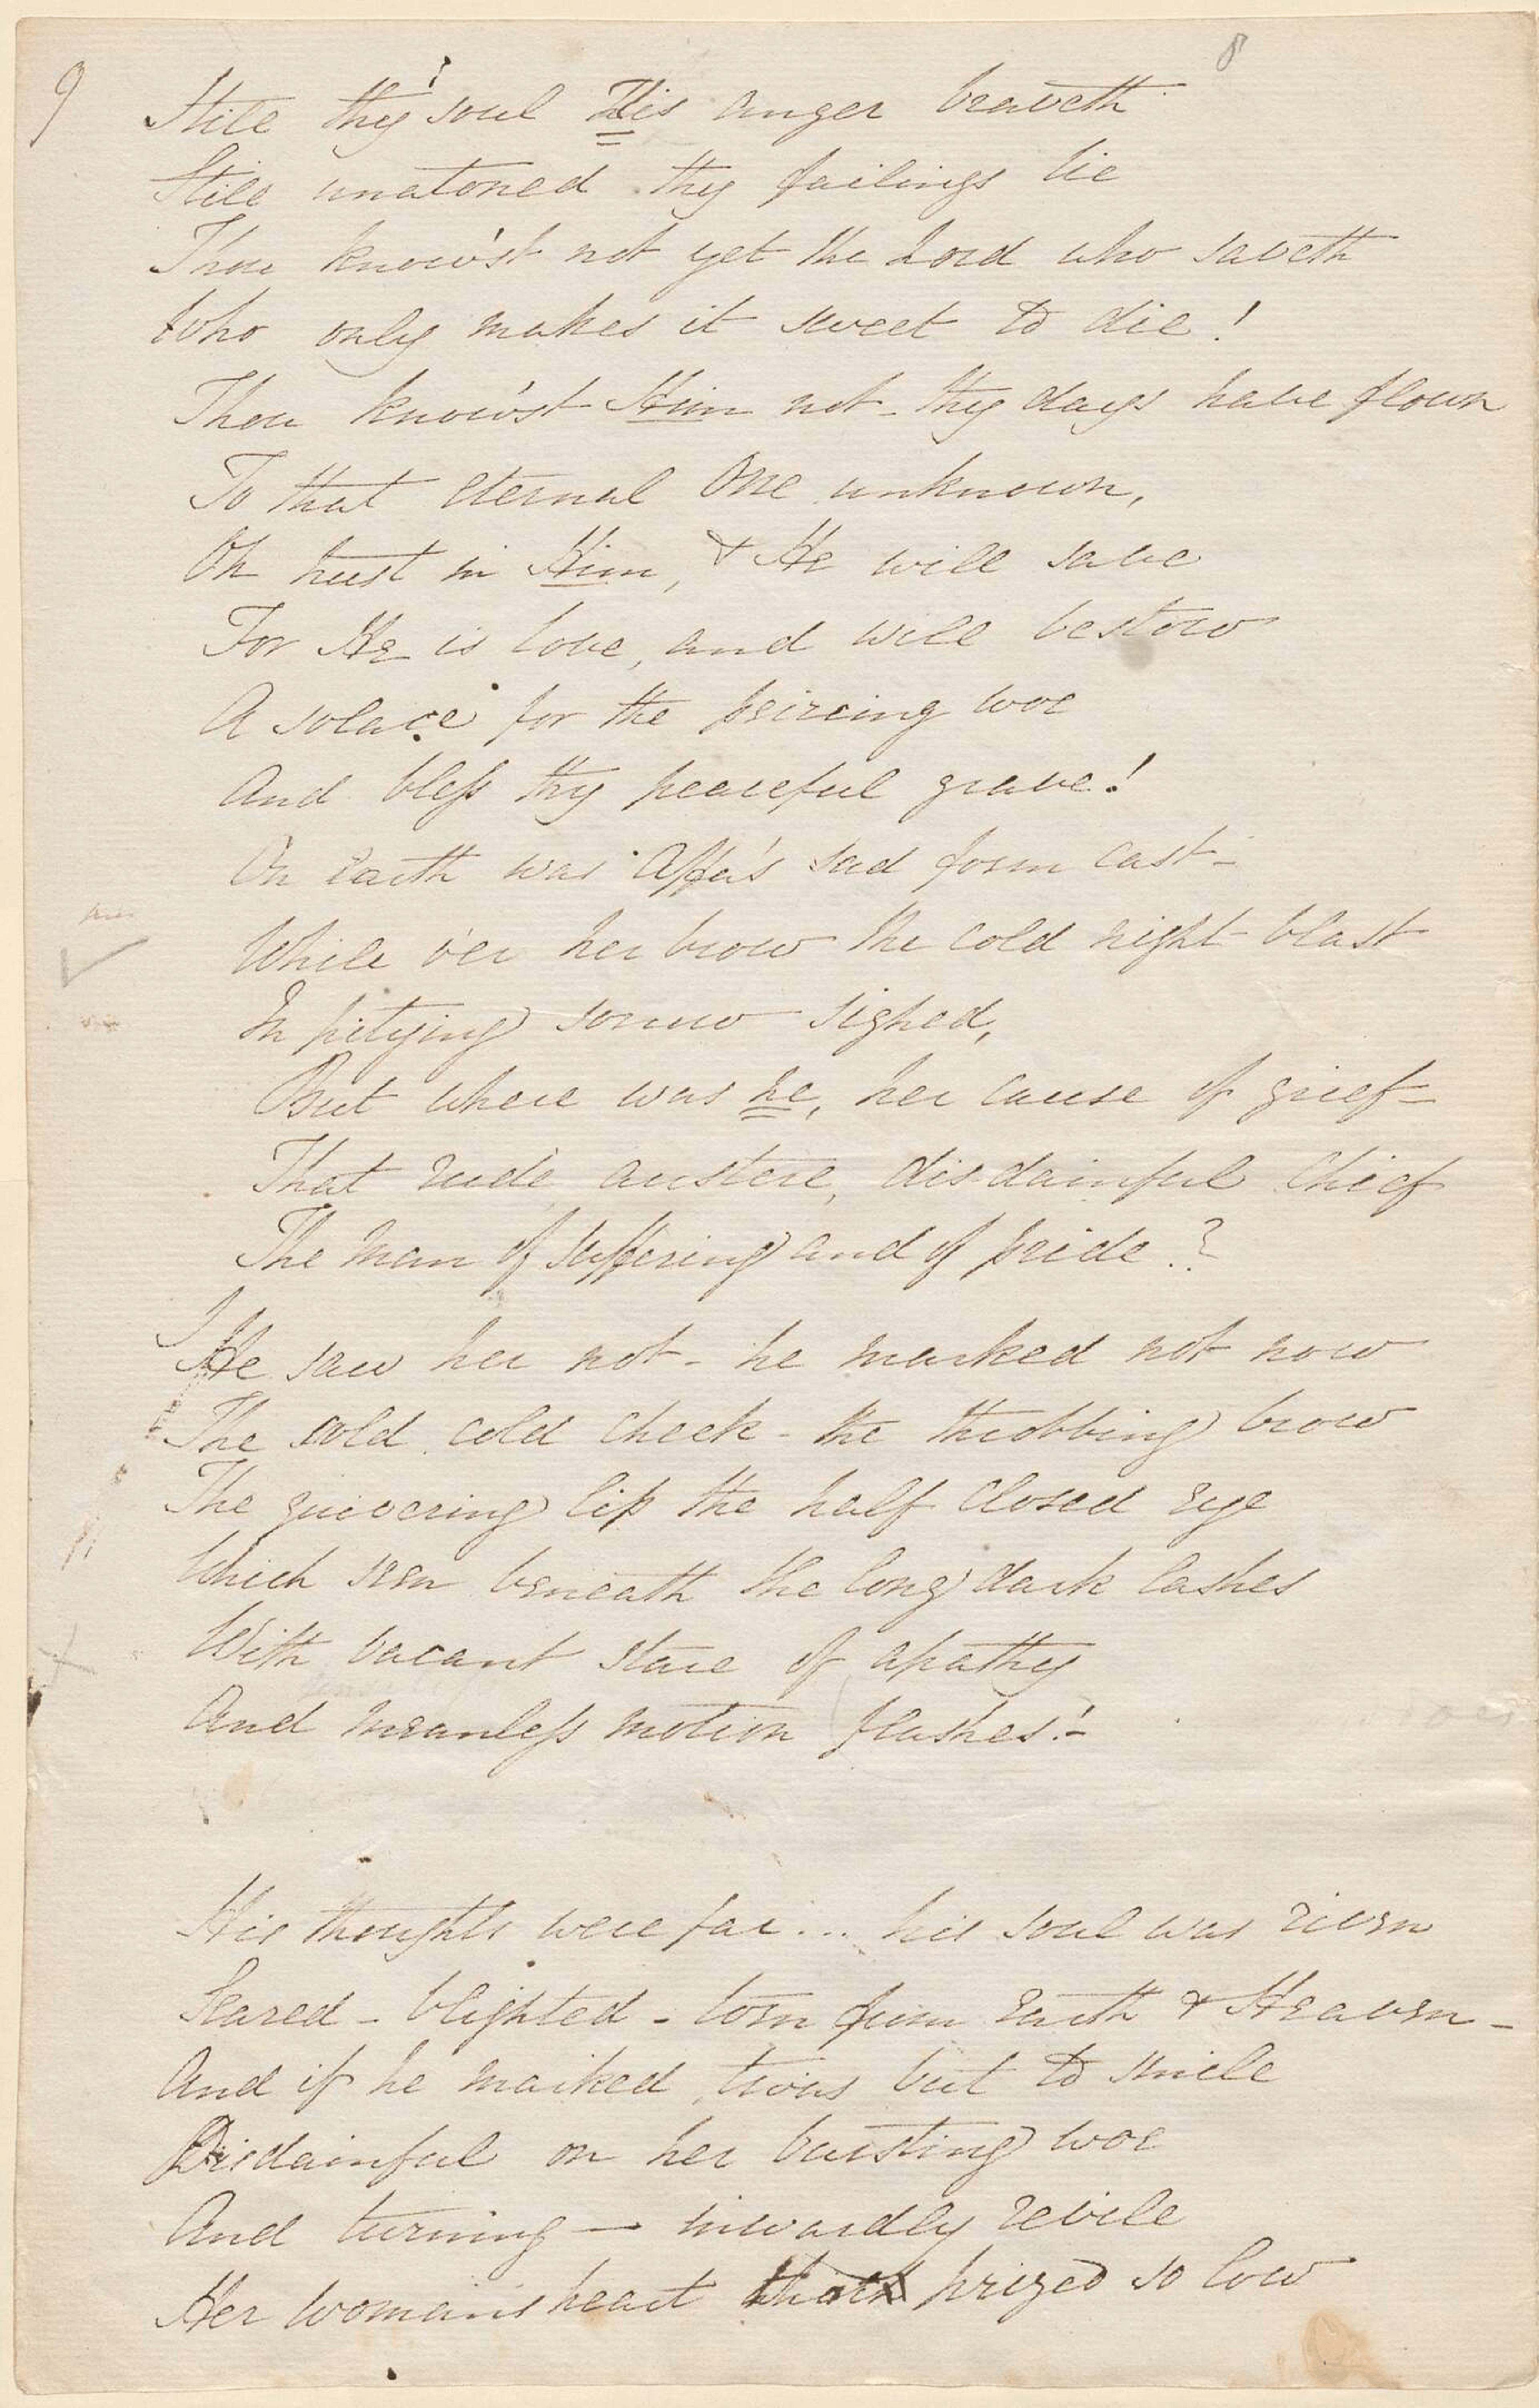 9
8
Still thy soul His anger braveth
Still unatoned thy failings lie
Thou know'st not yet the Lord who saveth
Who only makes it sweet to die!
Thou know'st Him not - thy days have flown
To that eternal One unknown,
Oh trust in Him, & He will save
For He is love, and will bestow
A solace for the peircing woe
And bless thy peaceful grave!
On Earth was Affa's sad form cast -
While o'er her brow the cold night blast
In pitying sorrow sighed,
But where was he, her cause of grief -
That rude austere, disdainful Chief
The man of suffering and of pride?
He saw her not - he marked not now
The cold cold cheek - the throbbing brow
The quivering lip the half closed eye
Which seen beneath the long dark lashes
With vacant stare of apathy
And meanless motion flashes! -
His thoughts were far ... his soul was riven
Seared - blighted - torn from earth & Heaven -
And if he marked, twas but to smile
Disdainful on her bursting woe
And turning — inwardly revile
Her womans heart prized so low